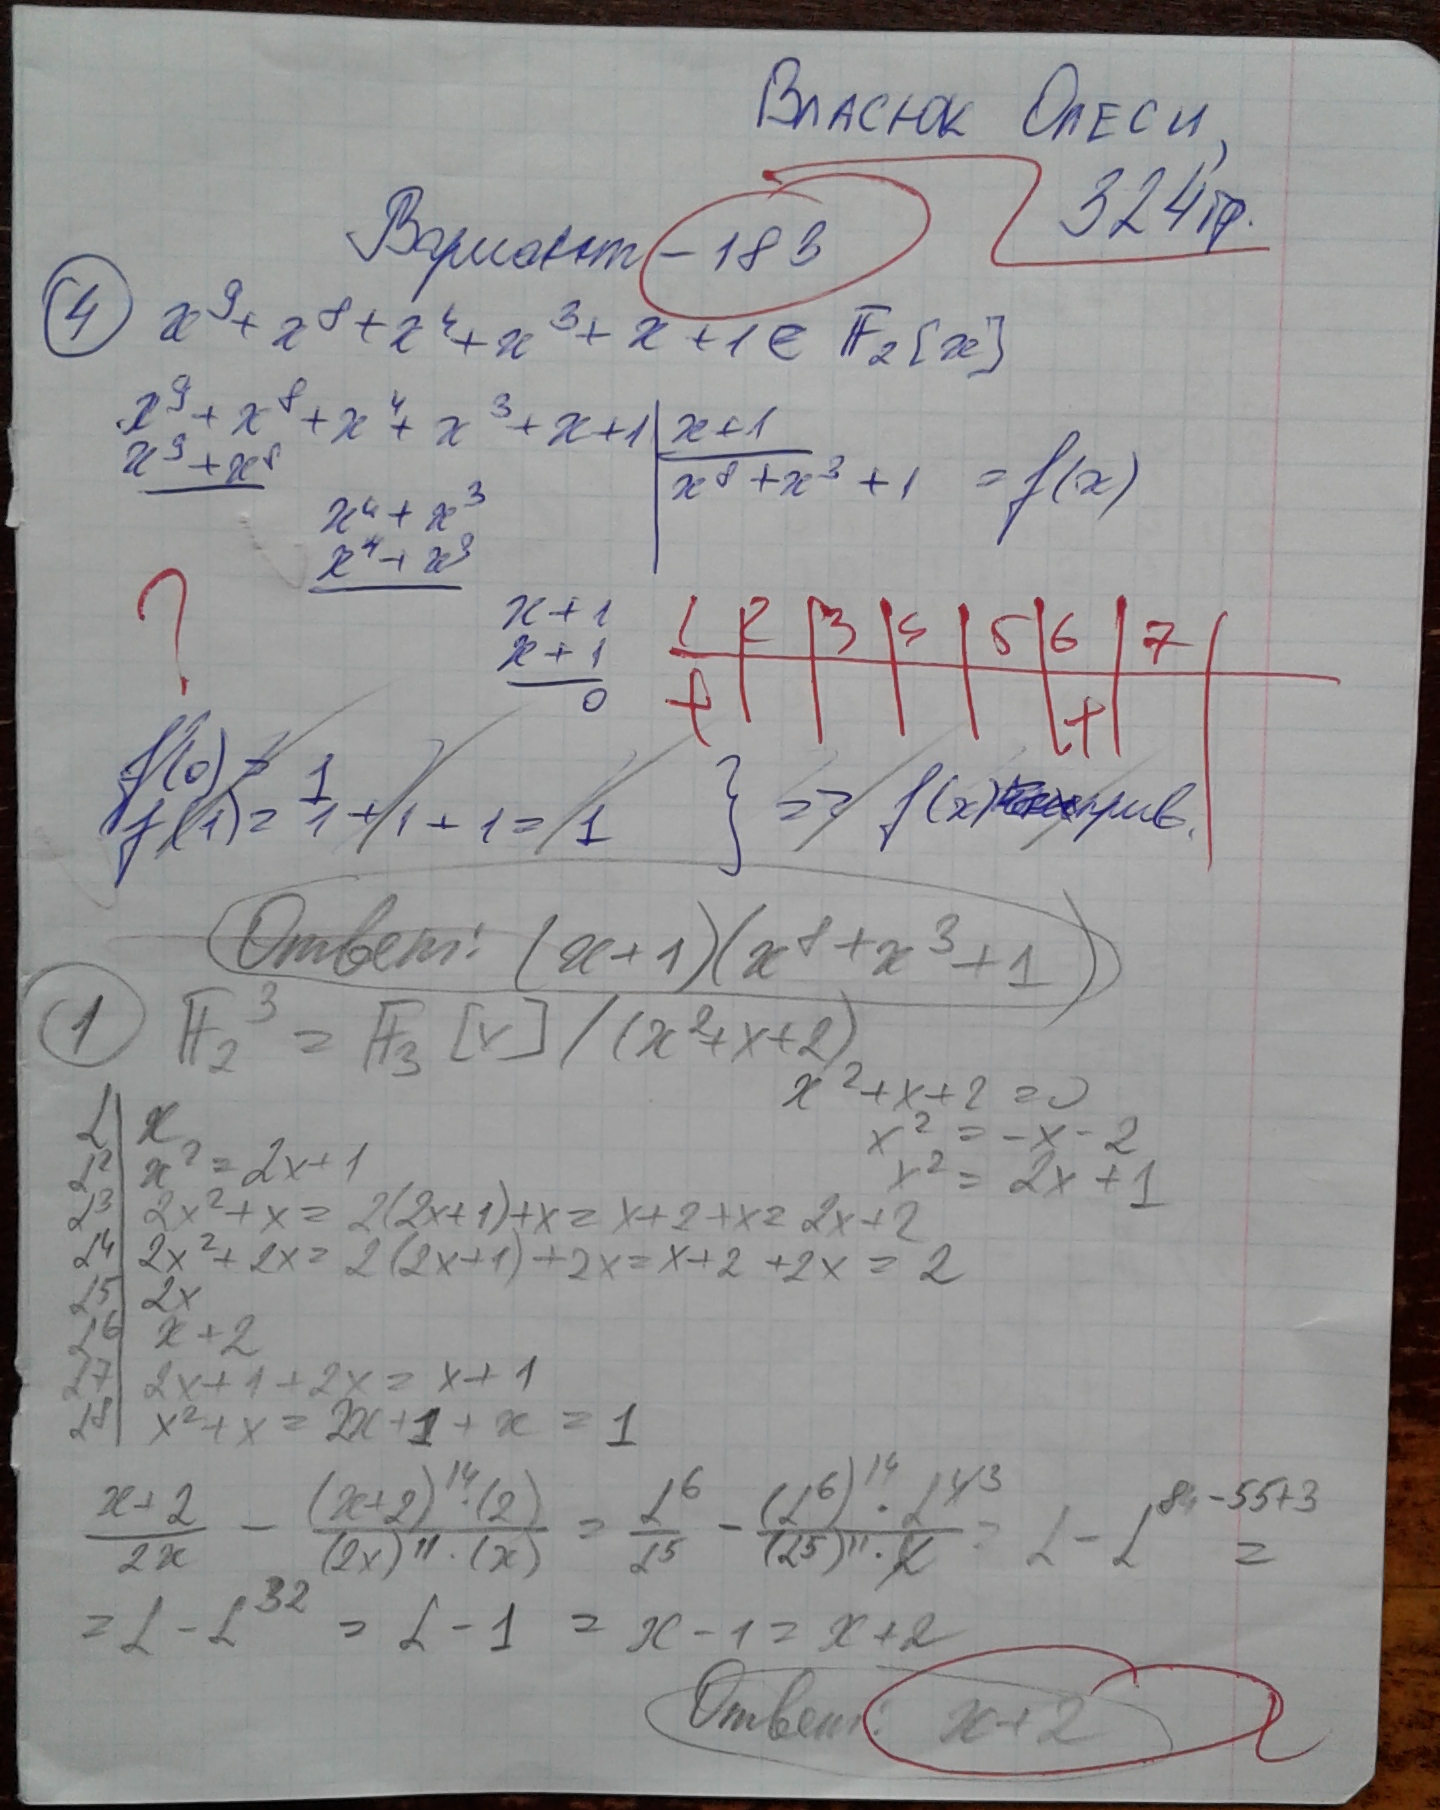 Власюк Олеси,
324 гр.
Вариант - 183
4 x⁹ + x⁸ + x⁴ + x³ + x + 1 ∈ 𝔽₂[x]
x⁹ + x⁸ + x⁴ + x³ + x + 1 | x + 1
x⁹ + x⁸ x⁸ + x³ + 1 = f(x)
x⁴ + x³
x⁴ + x³
?
x + 1
x + 1
0
1 | 2 | 3 | 4 | 5 | 6 | 7
+ | | | | | + |
f(0) = 1
f(1) = 1 + 1 + 1 = 1 } => f(x) прив.
Ответ: (x+1)(x⁸ + x³ + 1)
1 𝔽₂³ = 𝔽₃[x] / (x² + x + 2)
x² + x + 2 = 0
x² = -x - 2
x² = 2x + 1
L | x
L² | x² = 2x + 1
L³ | 2x² + x = 2(2x+1) + x = x + 2 + x = 2x + 2
L⁴ | 2x² + 2x = 2(2x+1) + 2x = x + 2 + 2x = 2
L⁵ | 2x
L⁶ | x + 2
L⁷ | 2x + 1 + 2x = x + 1
L⁸ | x² + x = 2x + 1 + x = 1
(x+2)/(2x) - ((x+2)¹⁴·(2))/((2x)¹¹·(x)) = L⁶/L⁵ - ((L⁶)¹⁴·L⁴ ³)/((L⁵)¹¹·L) = L - L⁸⁴⁻⁵⁵⁺³ =
= L - L³² = L - 1 = x - 1 = x + 2
Ответ: x + 2